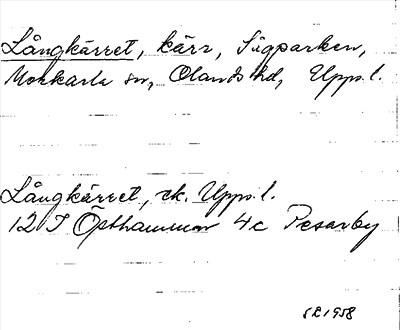 Långkärret, kärr, Sågparken,
Morkarla sn, Olands hd, Upps. l.
Långkärret, ek. Upps. l.
12 I Östhammar 4c Pesarby
SE 1958